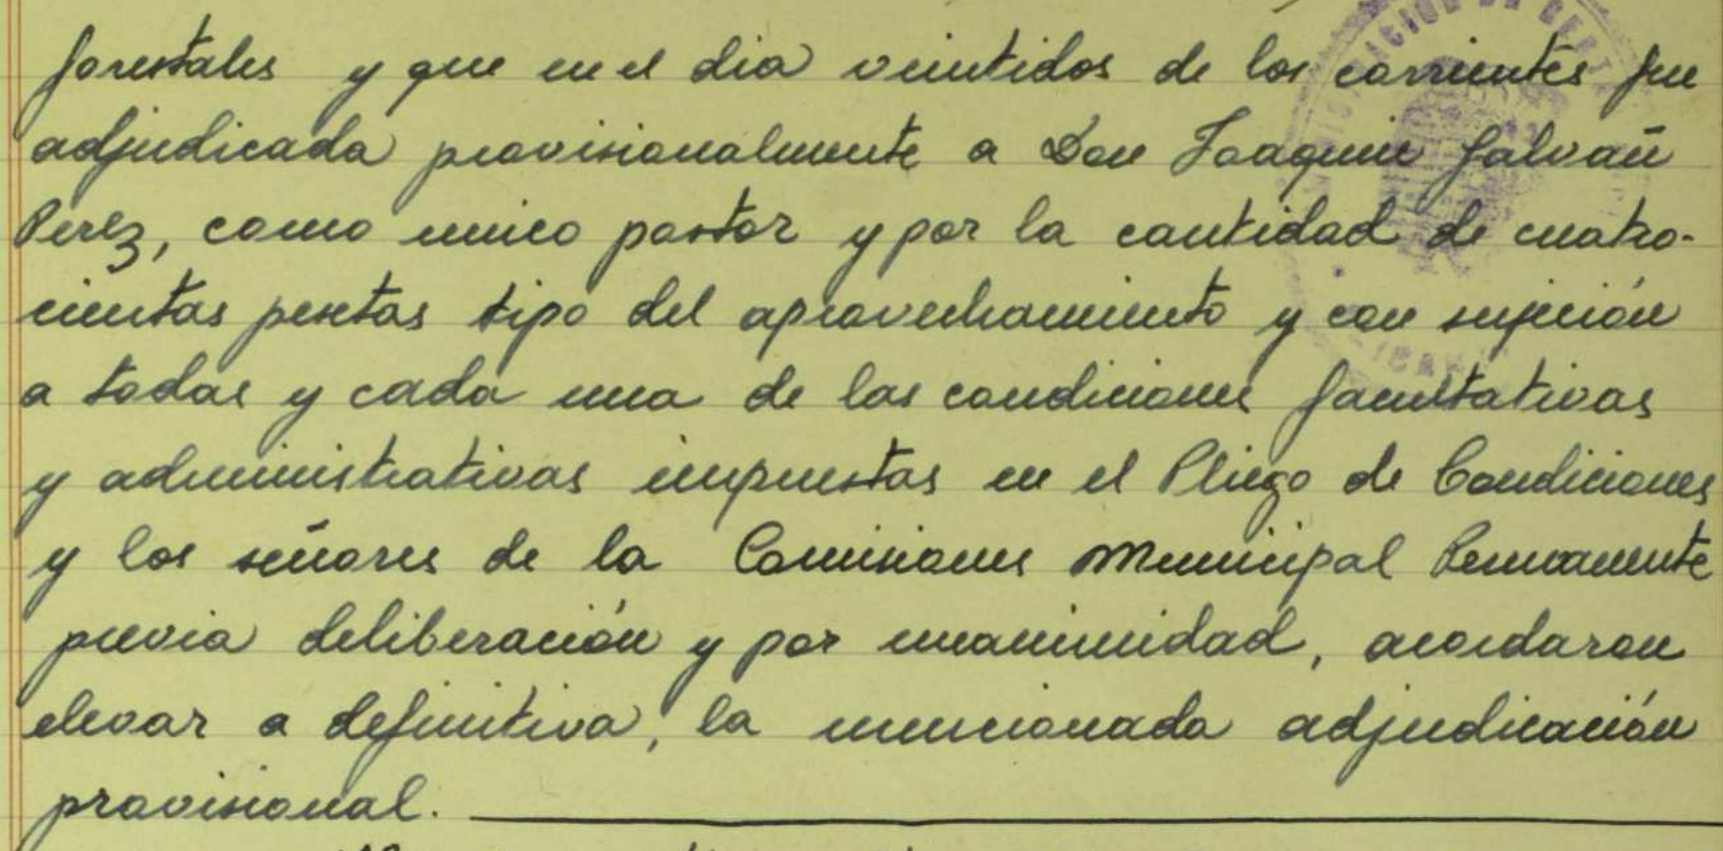 forestales y que en el dia veintidos de los corrientes fue
adjudicada provisionalmente a Don Joaquin Galvañ
Perez, como unico postor y por la cantidad de cuatro-
cientas pesetas tipo del aprovechamiento y con sujeción
a todas y cada una de las condiciones facultativas
y administrativas impuestas en el Pliego de Condiciones
y los señores de la Comisiones Municipal Permanente
previa deliberación y por unanimidad, acordaron
elevar a definitiva, la mencionada adjudicación
provisional.